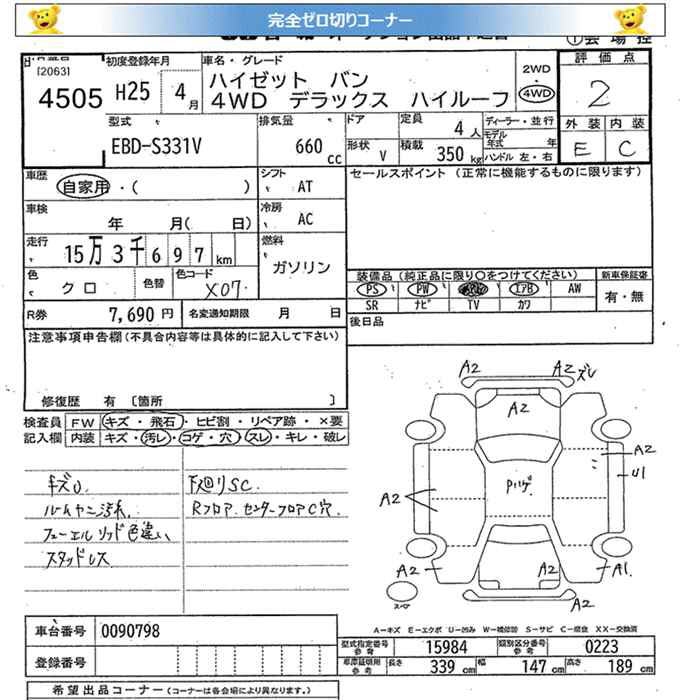 完全ゼロ切りコーナー
[2063]
4505
初度登録年月
H25 4月
車名・グレード
ハイゼット バン
4WD デラックス ハイルーフ
2WD
・
4WD
評価点
2
外装 内装
E C
型式
EBD-S331V
排気量
660 cc
ドア
形状 V
定員 4人
積載 350 kg
ディーラー・並行
モデル年式 年
ハンドル 左・右
車歴
自家用・( )
シフト
AT
セールスポイント (正常に機能するものに限ります)
車検
年 月( 日)
冷房
AC
走行
15万3千697km
燃料
ガソリン
色
クロ
色替
色コード
X07
装備品(純正品に限り○をつけてください)
新車保証書
PS PW エアB AW
SR ナビ TV カワ
有・無
R券 7,690円
名変通知期限 月 日
後日品
注意事項申告欄(不具合内容等は具体的に記入して下さい)
修復歴 有 〔箇所 〕
検査員
記入欄
FW キズ・飛石・ヒビ割・リペア跡・×要
内装 キズ・汚レ・コゲ・穴・スレ・キレ・破レ
キズU
下廻りSC
ルームヤニ汚れ
Rフロア センターフロアC穴
フューエルリッド色違い
スタッドレス
A2
A2 ズレ
A2
A2
U1
A2
A2
A2
A1
A2
スペア
A-キズ E-エクボ U-凹み W-補修跡 S-サビ C-腐食 XX-交換済
車台番号 0090798
登録番号
型式指定番号 参考 15984
類別区分番号 参考 0223
車庫証明用 参考 長さ 339 cm 幅 147 cm 高さ 189 cm
希望出品コーナー(コーナーは各会場により異なります。)